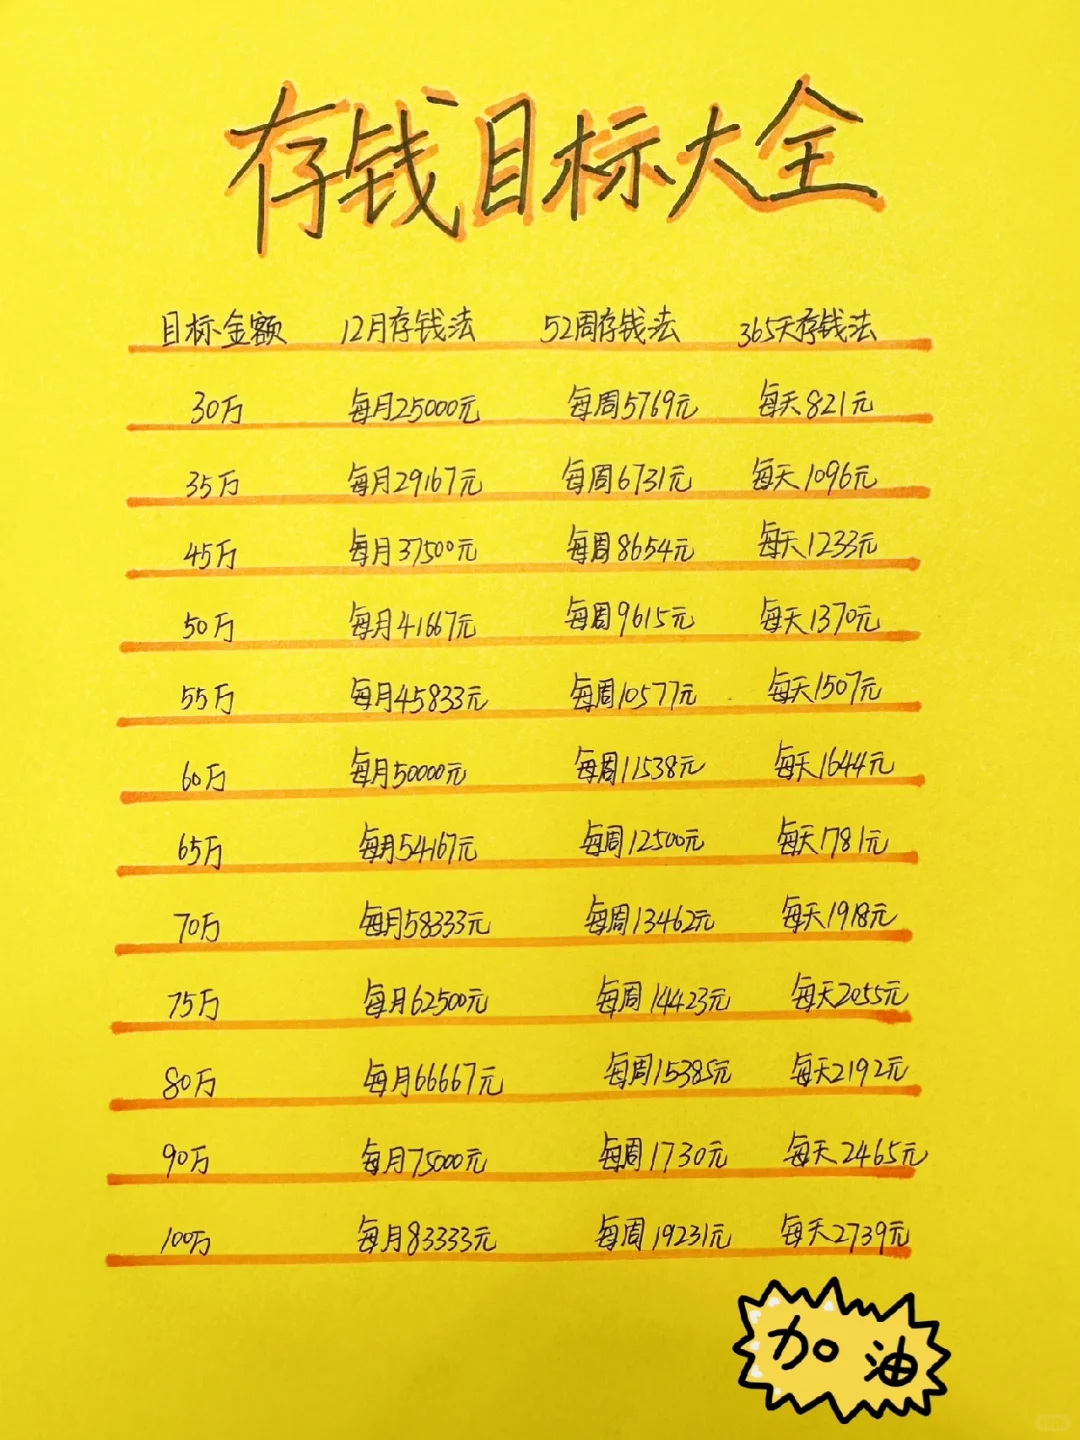 存钱目标大全
目标金额 12月存钱法 52周存钱法 365天存钱法
30万 每月25000元 每周5769元 每天821元
35万 每月29167元 每周6731元 每天1096元
45万 每月37500元 每周8654元 每天1233元
50万 每月41667元 每周9615元 每天1370元
55万 每月45833元 每周10577元 每天1507元
60万 每月50000元 每周11538元 每天1644元
65万 每月54167元 每周12500元 每天1781元
70万 每月58333元 每周13462元 每天1918元
75万 每月62500元 每周14423元 每天2055元
80万 每月66667元 每周15385元 每天2192元
90万 每月75000元 每周1730元 每天2465元
100万 每月83333元 每周19231元 每天2739元
加油